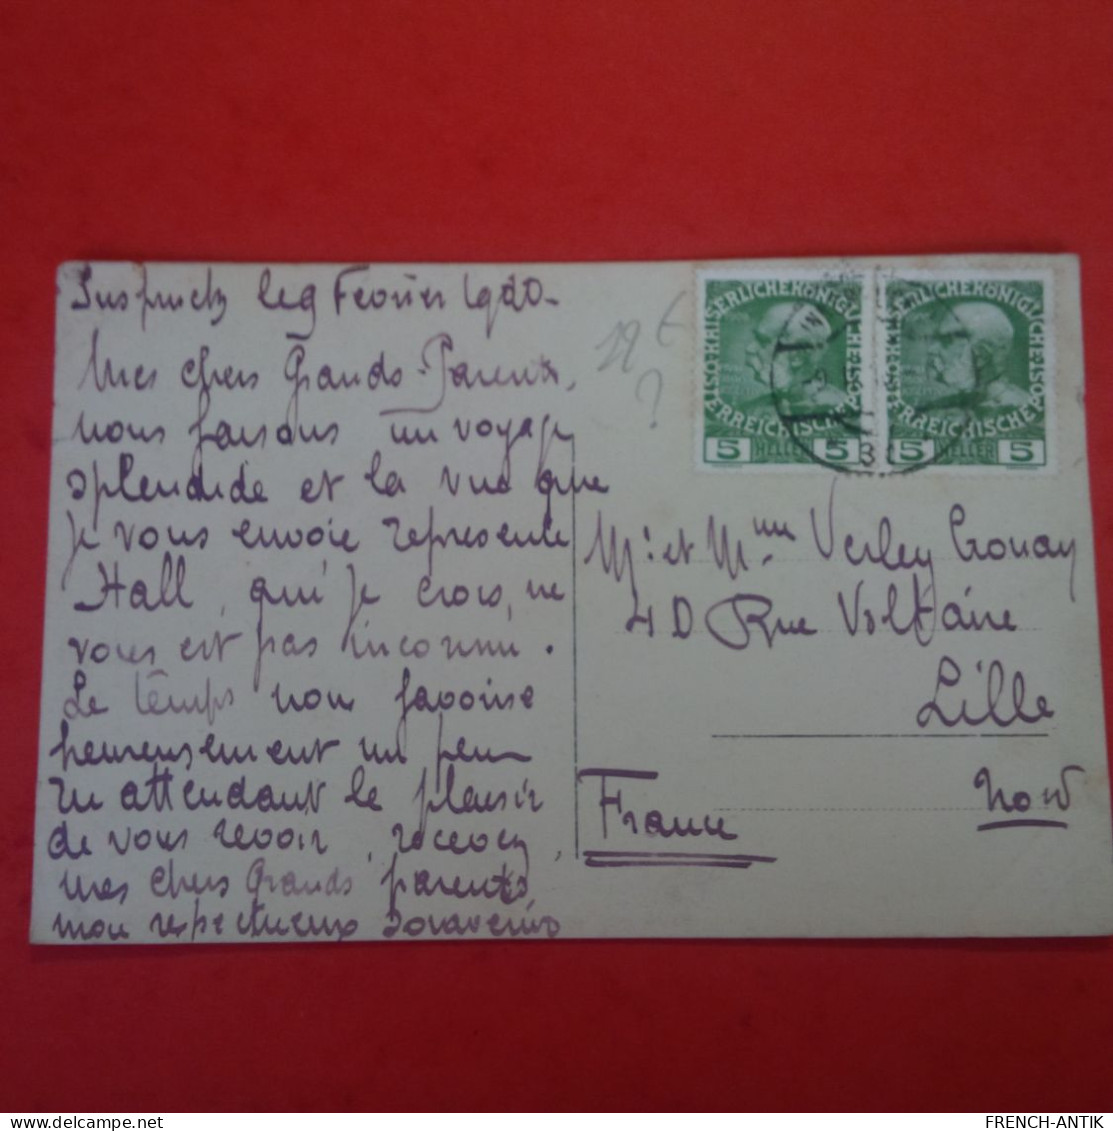 Inspruck le 9 Février
Mes chers Grands-Parents,
nous faisons un voyage
splendide et la vue que
je vous envoie represente
Hall, qui je crois, ne
vous est pas inconnu.
Le temps nous favorise
heureusement un peu
En attendant le plaisir
de vous revoir, recevez,
mes chers Grands parents
mon respectueux souvenir
19 €
?
KAISERLICHEKÖNIGLICHE
ÖSTERREICHISCHE POST
5 HELLER 5
KAISERLICHEKÖNIGLICHE
ÖSTERREICHISCHE POST
5 HELLER 5
Mr et Mme Verley Crouay
40 Rue Voltaire
Lille
Nord
France
FRENCH-ANTIK
https://www.delcampe.net